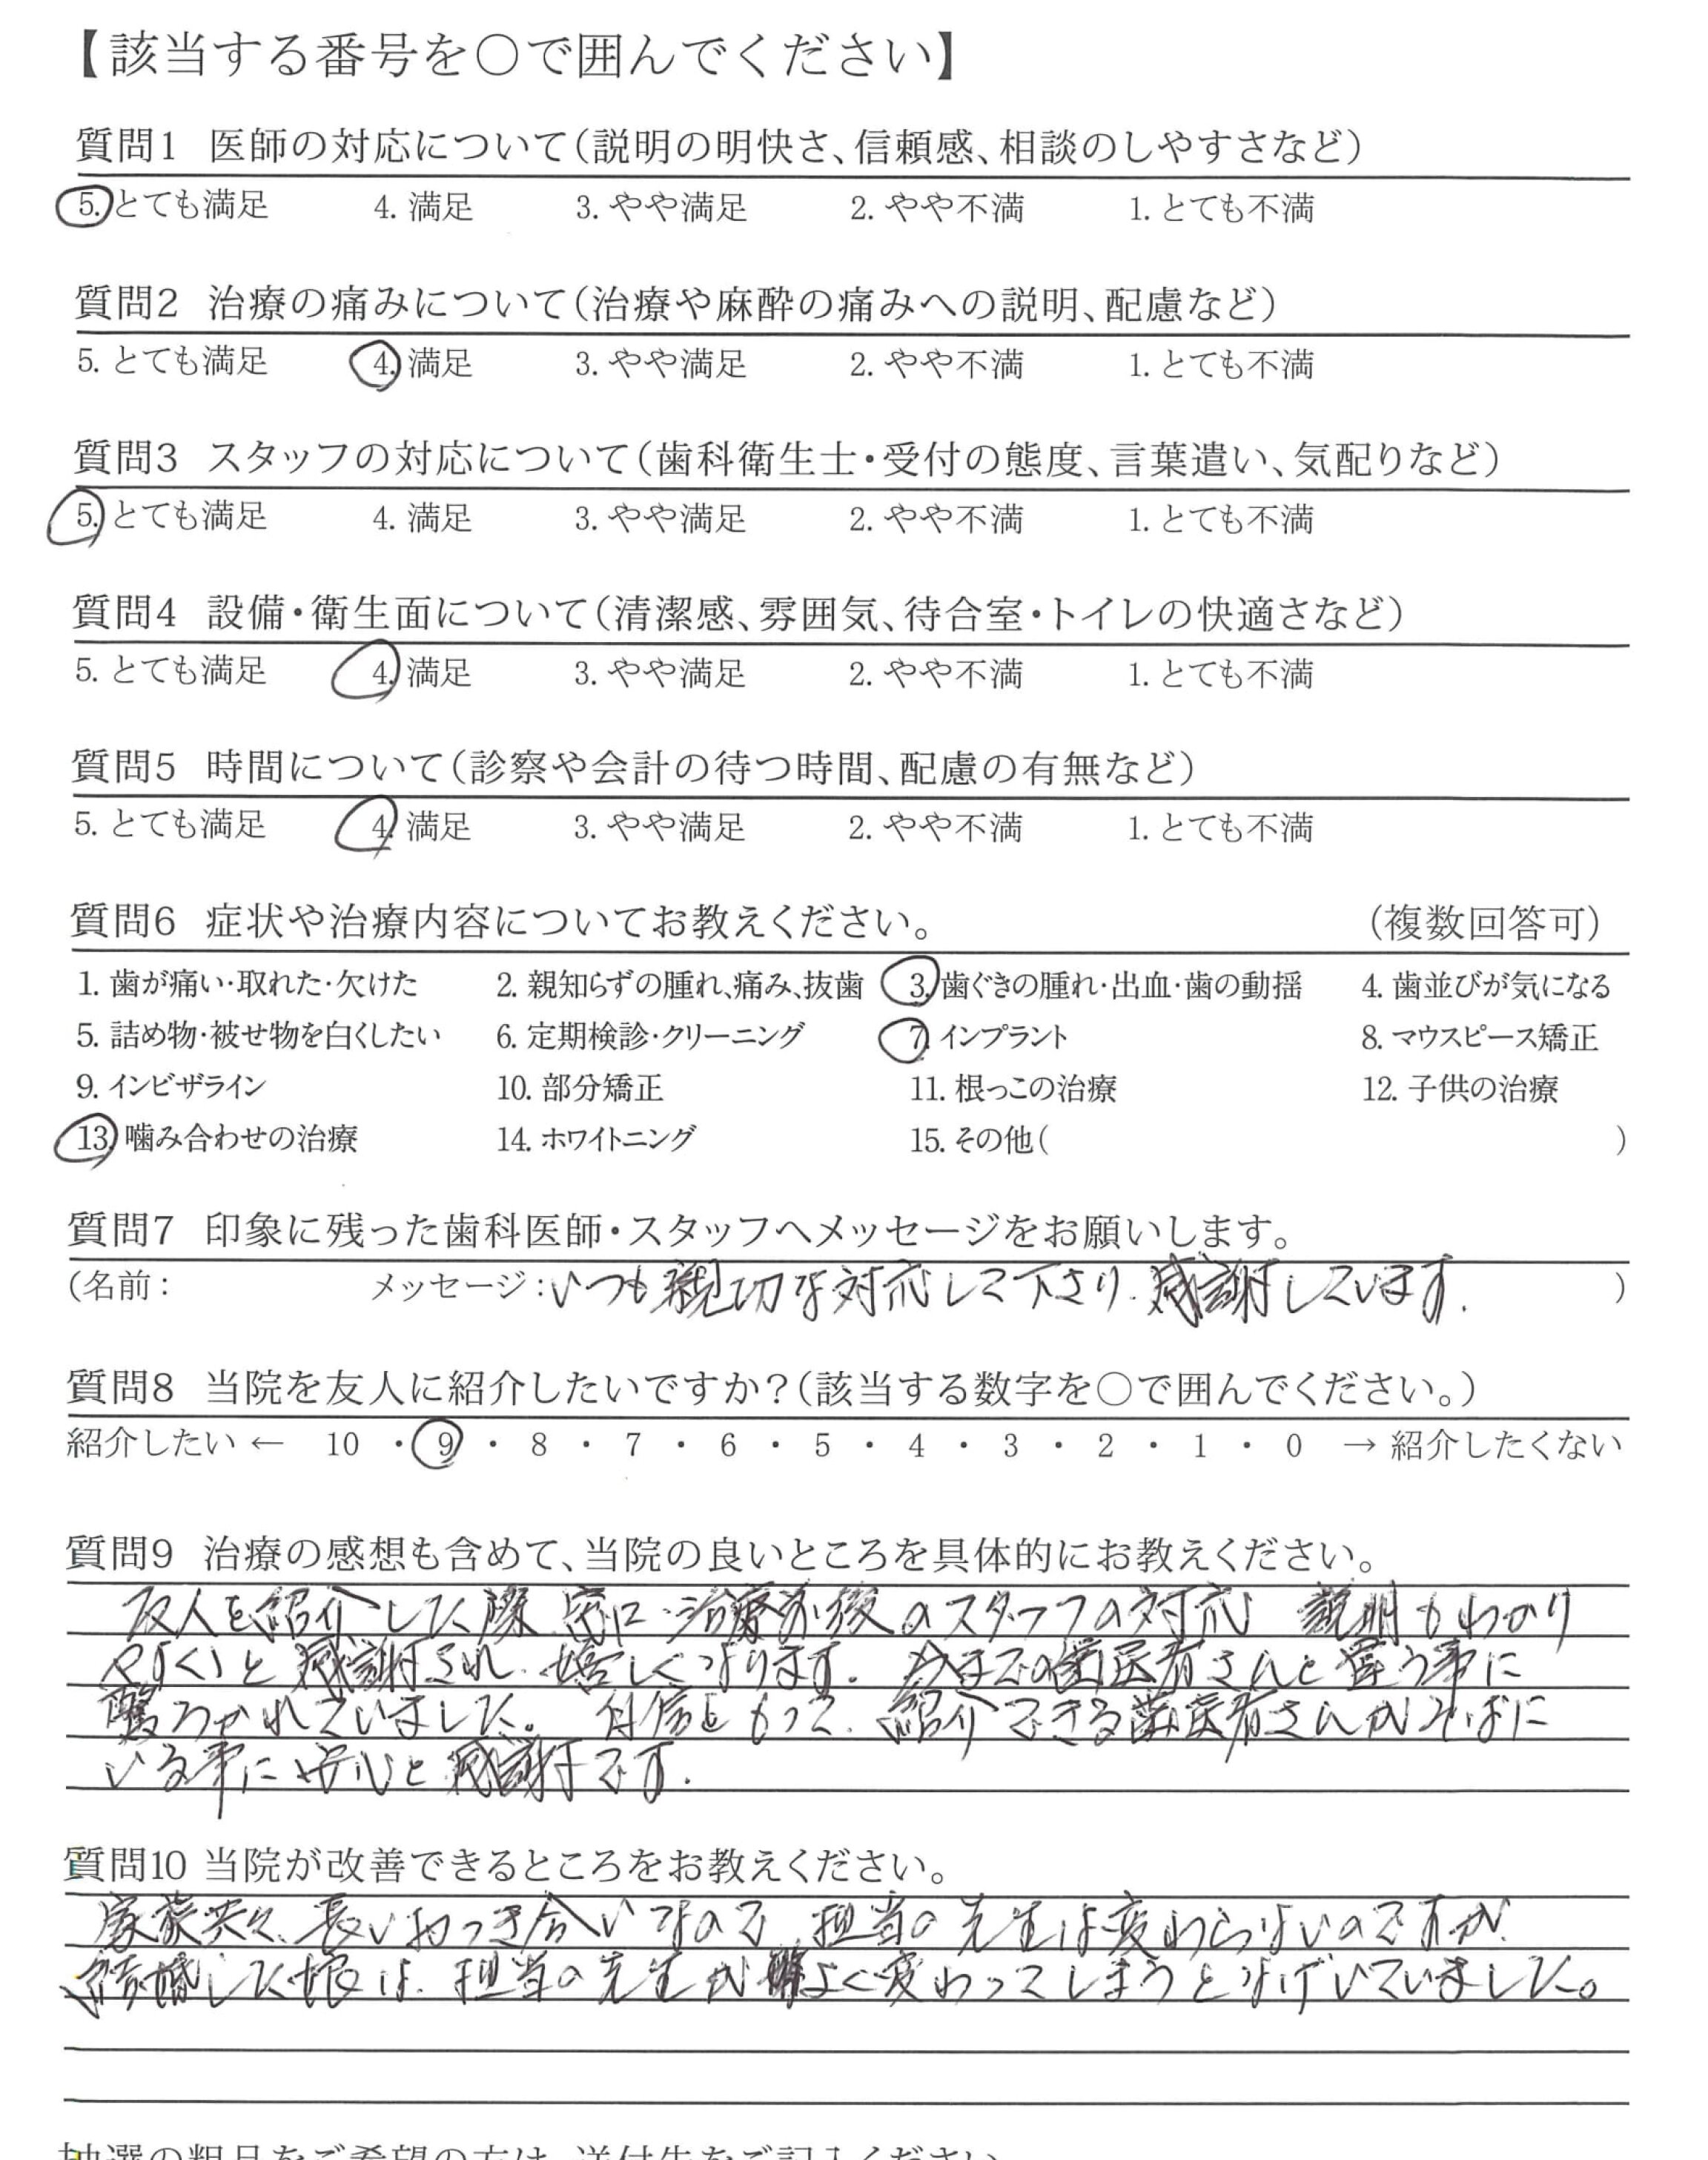 【該当する番号を○で囲んでください】
質問1 医師の対応について(説明の明快さ、信頼感、相談のしやすさなど)
5. とても満足 4. 満足 3. やや満足 2. やや不満 1. とても不満
質問2 治療の痛みについて(治療や麻酔の痛みへの説明、配慮など)
5. とても満足 4. 満足 3. やや満足 2. やや不満 1. とても不満
質問3 スタッフの対応について(歯科衛生士・受付の態度、言葉遣い、気配りなど)
5. とても満足 4. 満足 3. やや満足 2. やや不満 1. とても不満
質問4 設備・衛生面について(清潔感、雰囲気、待合室・トイレの快適さなど)
5. とても満足 4. 満足 3. やや満足 2. やや不満 1. とても不満
質問5 時間について(診察や会計の待つ時間、配慮の有無など)
5. とても満足 4. 満足 3. やや満足 2. やや不満 1. とても不満
質問6 症状や治療内容についてお教えください。 (複数回答可)
1. 歯が痛い・取れた・欠けた 2. 親知らずの腫れ、痛み、抜歯 3. 歯ぐきの腫れ・出血・歯の動揺 4. 歯並びが気になる
5. 詰め物・被せ物を白くしたい 6. 定期検診・クリーニング 7. インプラント 8. マウスピース矯正
9. インビザライン 10. 部分矯正 11. 根っこの治療 12. 子供の治療
13. 噛み合わせの治療 14. ホワイトニング 15. その他( )
質問7 印象に残った歯科医師・スタッフへメッセージをお願いします。
(名前: メッセージ:いつも親切な対応して下さり、感謝しています。 )
質問8 当院を友人に紹介したいですか?(該当する数字を○で囲んでください。)
紹介したい ← 10 ・ 9 ・ 8 ・ 7 ・ 6 ・ 5 ・ 4 ・ 3 ・ 2 ・ 1 ・ 0 → 紹介したくない
質問9 治療の感想も含めて、当院の良いところを具体的にお教えください。
友人を紹介した際、治療前後のスタッフの対応 説明もわかり
やすくと感謝され、嬉しくなります。今までの歯医者さんと違う事に
驚ろかれていました。自信をもって、紹介できる歯医者さんがそばに
いる事に安心と感謝です。
質問10 当院が改善できるところをお教えください。
家族共々、長いおつき合いなので 担当の先生は変わらないのですが、
結婚した娘は、担当の先生がよく変わってしまうとなげいていました。
抽選の粗品をご希望の方は、送付先をご記入ください